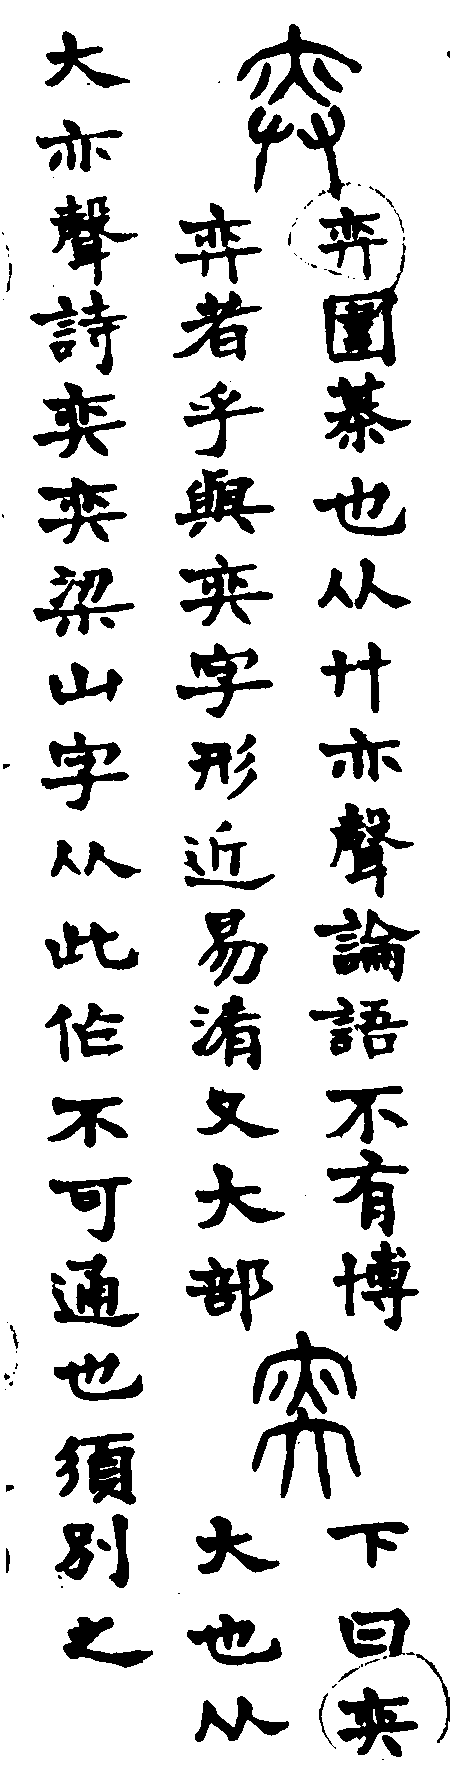 弈
弈圍棊也从廾亦聲論語不有博
弈者乎與奕字形近易淆又大部
奕
下曰奕
大也从
大亦聲詩奕奕梁山字从此作不可通也須別之